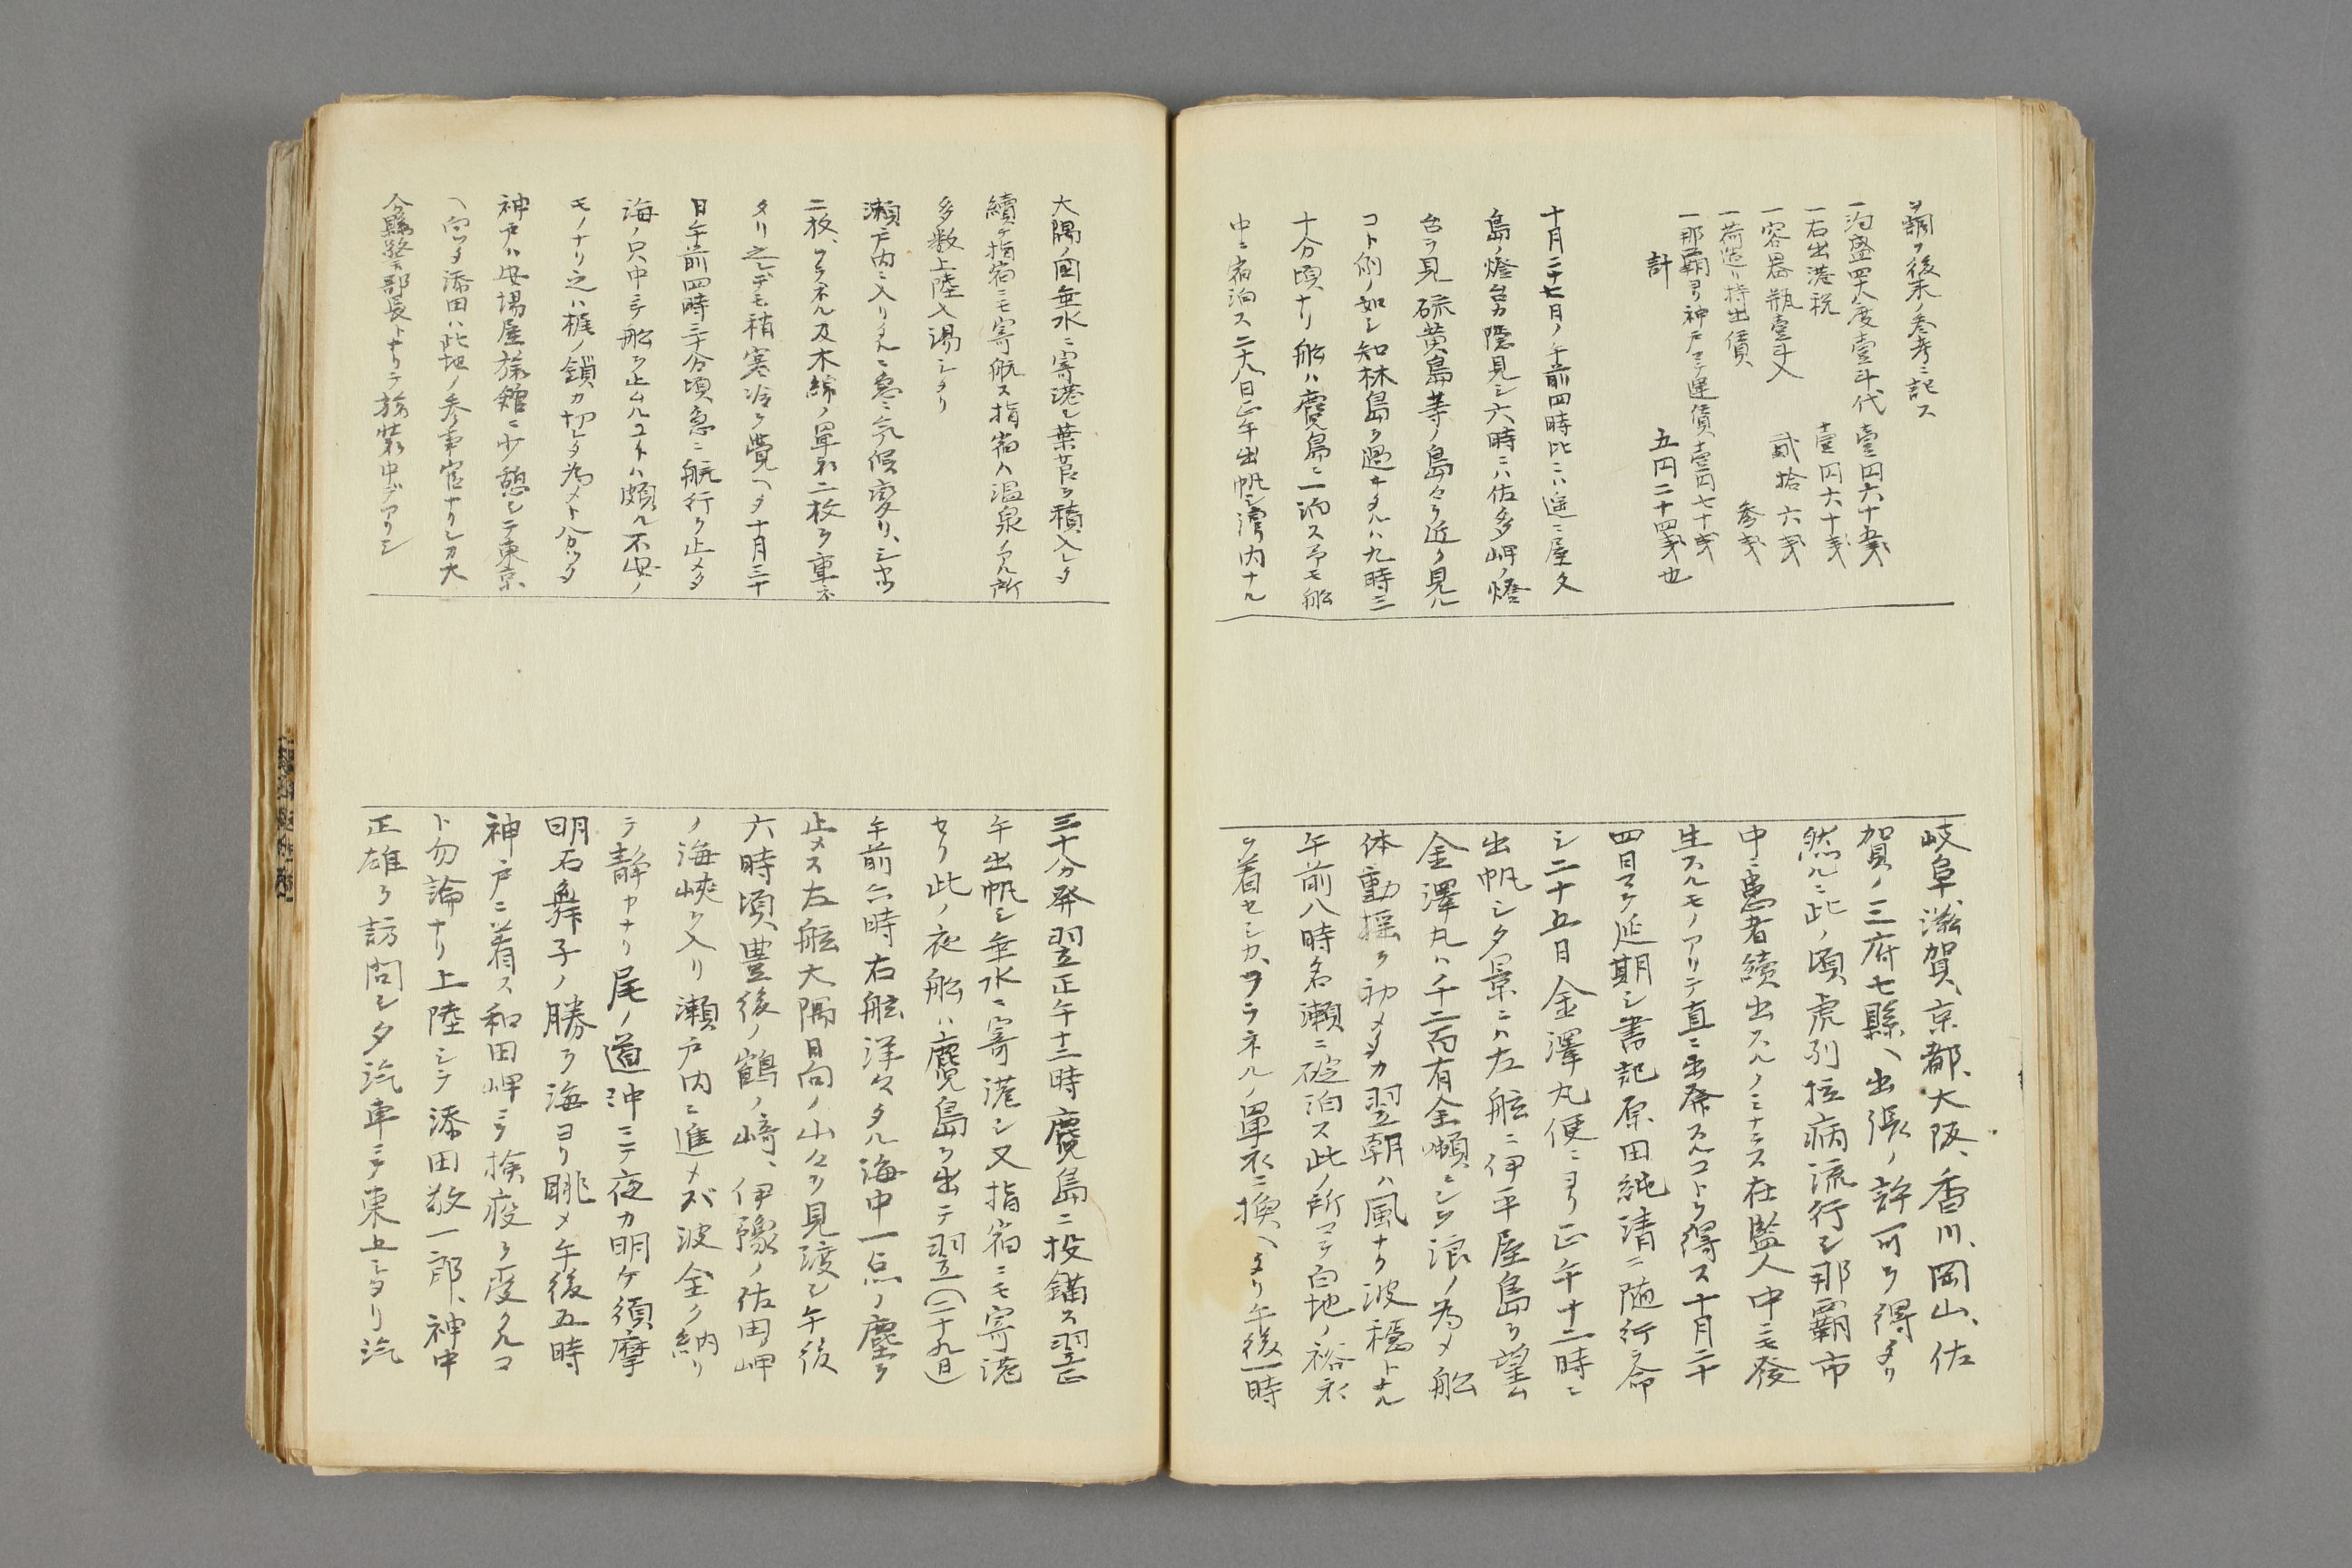 ヲ調フ後来ノ参考ニ記ス
一泡盛四十八度壹斗代 壹円六十五戋
一右出港税 壹円六十戋
一容器瓶壹斗入 貳拾六戋
一荷造リ持出賃 参戋
一那覇ヨリ神戸マテ運賃 壹円七十戋
計 五円二十四戋也
十月二十七日ノ午前四時比ニハ遥ニ屋久
島ノ燈台カ隠見シ六時ニハ佐多岬ノ燈
台ヲ見硫黄島等ノ島々ヲ近ク見ル
コト例ノ如シ知林島ヲ過キタルハ九時三
十分頃ナリ船ハ鹿児島ニ一泊ス予モ船
中ニ宿泊ス二十八日正午出帆シ湾内ナル
岐阜、滋賀、京都、大阪、香川、岡山、佐
賀ノ三府七縣ヘ出張ノ許可ヲ得タリ
然ルニ此ノ頃虎列拉病流行シ那覇市
中ニ患者續出スルノミナラス在監人中ニモ發
生スルモノアリテ直ニ出発スルコトヲ得ス十月二十
四日マテ延期シ書記原田純清ニ随行ヲ命
シ二十五日金澤丸便ニヨリ正午十二時ニ
出帆シタ景ニハ左舷ニ伊平屋島ヲ望ム
金澤丸ハ千二百有余噸ニシテ浪ノ為メ船
体動揺ヲ初メタカ翌朝ハ風ナク波穏トナル
午前八時名瀬ニ碇泊ス此ノ所マテ白地ノ袷衣
ヲ着セシカ、フラネルノ単衣ニ換ヘタリ午後一時
大隅ノ国垂水ニ寄港シ葉莨ヲ積入レタ
續テ指宿ニモ寄航ス指宿ハ温泉ノアル所
多数上陸入湯シタリ
瀬戸内ニ入リタルニ急ニ気候変リ、シャツ
二枚、フラネル及木綿ノ単衣二枚ヲ重ネ
タリ之レデモ稍寒冷ヲ覺ヘタ十月三十
日午前四時三十分頃急ニ航行ヲ止メタ
海ノ只中ニテ船ヲ止ムルコトハ頗ル不安ノ
モノナリ之ハ梶ノ鎖カ切レタ為メト分ツタ
神戸ハ安場屋旅館ニ少憩シテ東京
ヘ向ツタ添田ハ此地ノ参事官ナリシカ大
分縣警部長トナリテ旅装中デアリシ
三十分発翌正午十二時鹿児島ニ投錨ス翌正
午出帆シ垂水ニ寄港シ又指宿ニモ寄港
セリ此ノ夜船ハ鹿児島ヲ出テ翌(二十九日)
午前六時右舷洋々タル海中一点ノ塵ヲ
止メス左舷大隅日向ノ山々ヲ見渡シ午後
六時頃豊後ノ鶴ノ崎、伊豫ノ佐田岬
ノ海峡ヲ入リ瀬戸内ニ進メバ波全ク納リ
テ静ヤナリ尾ノ道沖ニテ夜カ明ケ須摩
明石舞子ノ勝ヲ海ヨリ眺メ午後五時
神戸ニ着ス和田岬ニテ検疫ヲ受クルコ
ト勿論ナリ上陸シテ添田敬一郎、神中
正雄ヲ訪問シタ汽車ニテ東上シタリ汽